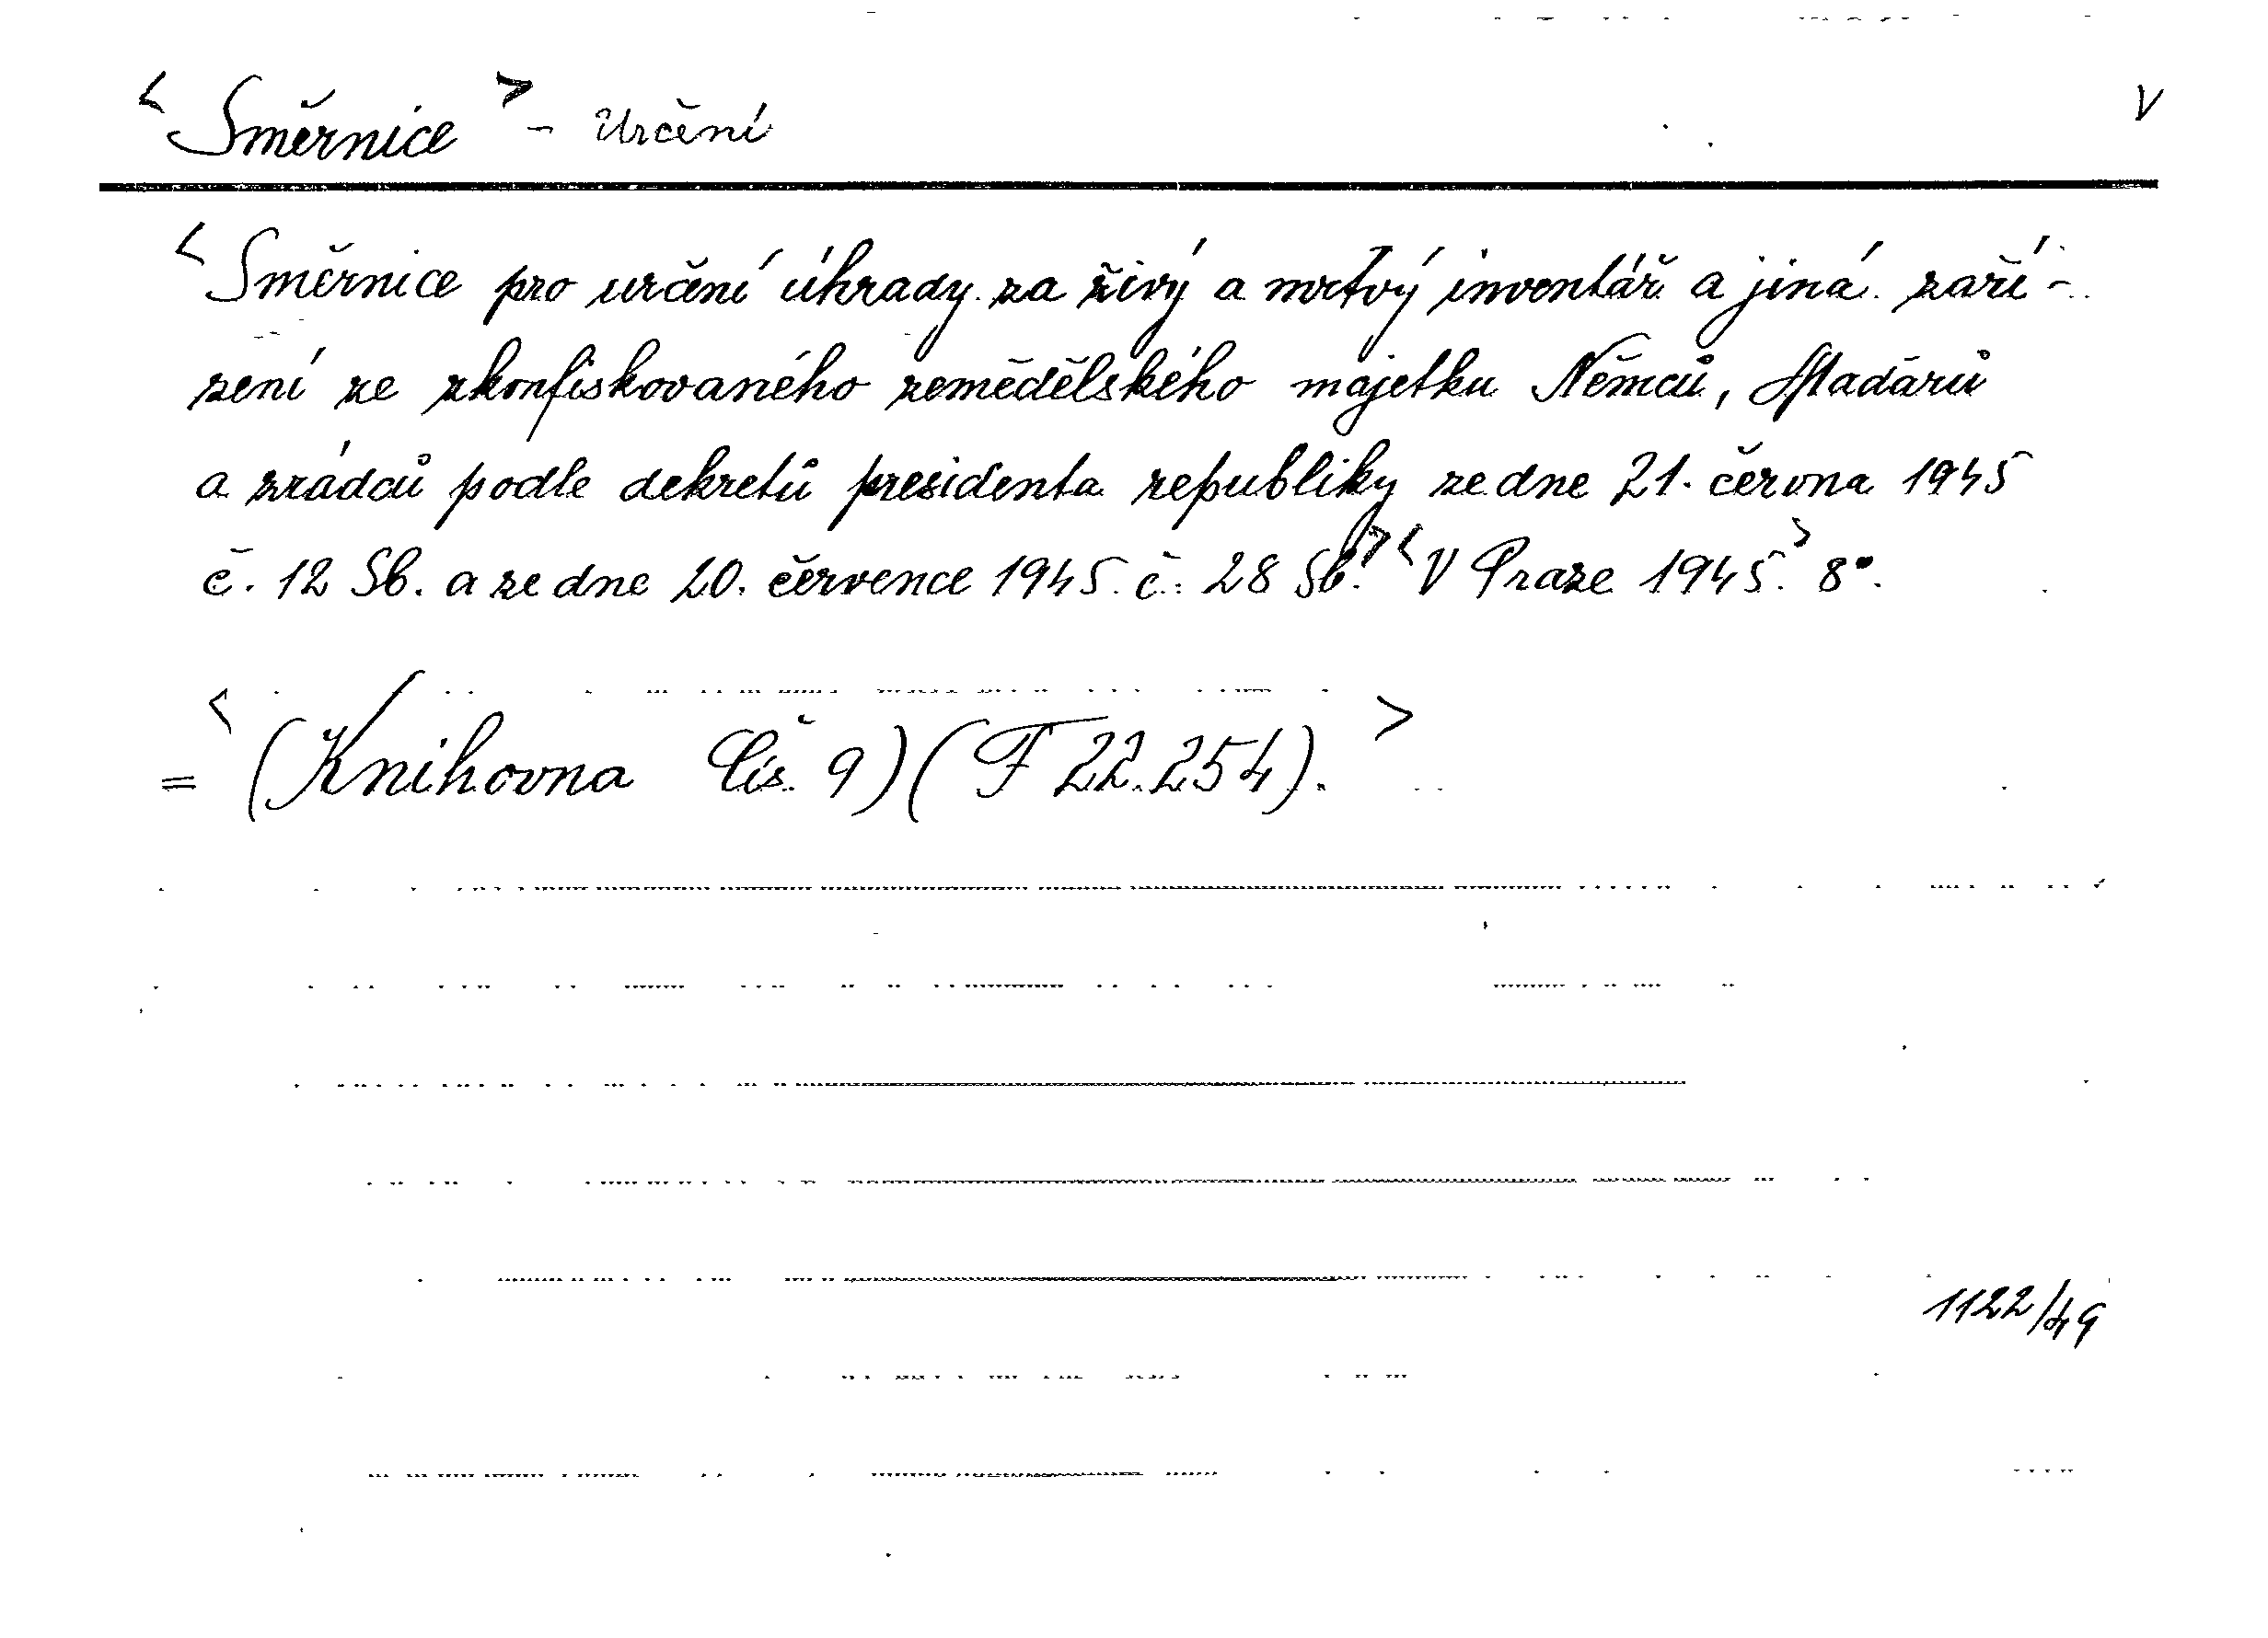 <Směrnice> - Určení V
<Směrnice pro určení úhrady za živý a mrtvý inventář a jiná zaří-
zení ze zkonfiskovaného zemědělského majetku Němců, Maďarů
a zrádců podle dekretů presidenta republiky ze dne 21. června 1945
č. 12 Sb. a ze dne 20. července 1945 č. 28 Sb.> <V Praze 1945.> 8°.
= <(Knihovna Čís. 9) (F 22.254).>
1122/49